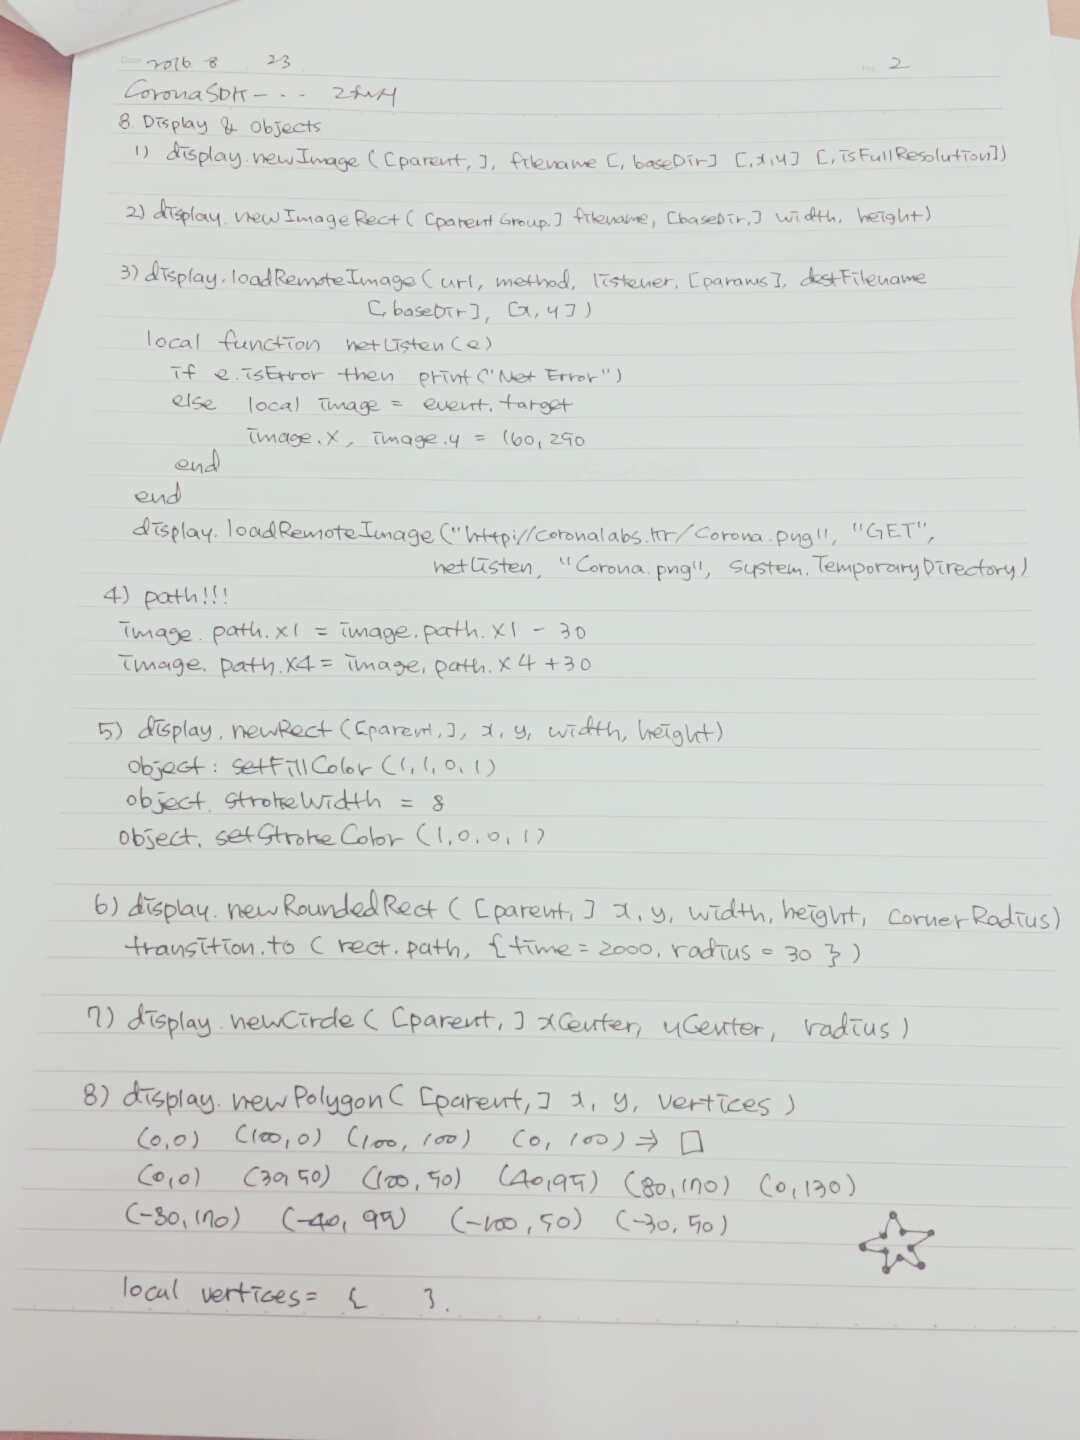 Date 2016 8 . 23 No. 2
CoronaSDK - - - 2주차
8. Display & Objects
1) display.newImage ( [parent,], filename [, baseDir] [,x,y] [, isFullResolution])
2) display.newImageRect ( [parentGroup,] filename, [baseDir,] width, height)
3) display.loadRemoteImage ( url, method, listener, [params], destFilename
[, baseDir], [x, y])
local function netListen (e)
if e.isError then print ("Net Error")
else local image = event.target
image.x, image.y = 160, 290
end
end
display.loadRemoteImage ("http://coronalabs.kr/Corona.png", "GET",
netListen, "Corona.png", system.TemporaryDirectory)
4) path!!!
image.path.x1 = image.path.x1 - 30
image.path.x4 = image.path.x4 + 30
5) display.newRect ([parent,], x, y, width, height)
object : setFillColor (1, 1, 0, 1)
object. strokeWidth = 8
object. setStrokeColor (1, 0, 0, 1)
6) display.newRoundedRect ( [parent,] x, y, width, height, cornerRadius)
transition.to ( rect.path, {time = 2000, radius = 30 } )
7) display.newCircle ( [parent,] xCenter, yCenter, radius)
8) display.newPolygon ( [parent,] x, y, vertices )
(0,0) (100,0) (100, 100) (0, 100) ⇒ □
(0,0) (30, 50) (100, 50) (40, 95) (80, 170) (0, 130)
(-80, 170) (-40, 95) (-100, 50) (-30, 50)
local vertices = { }.